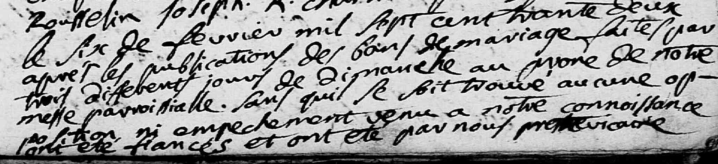 Rousselin Joseph. R.
le six de fevrier mil sept cent trante deux
aprest les publications des bans de mariage faites par
trois differents jours de dimanche au prone de notre
messe parroissialle. sans quil se soit trouvé aucune op-
position ni empechement venu a notre connoissance
ont eté fiancés et ont eté par nous vicaire